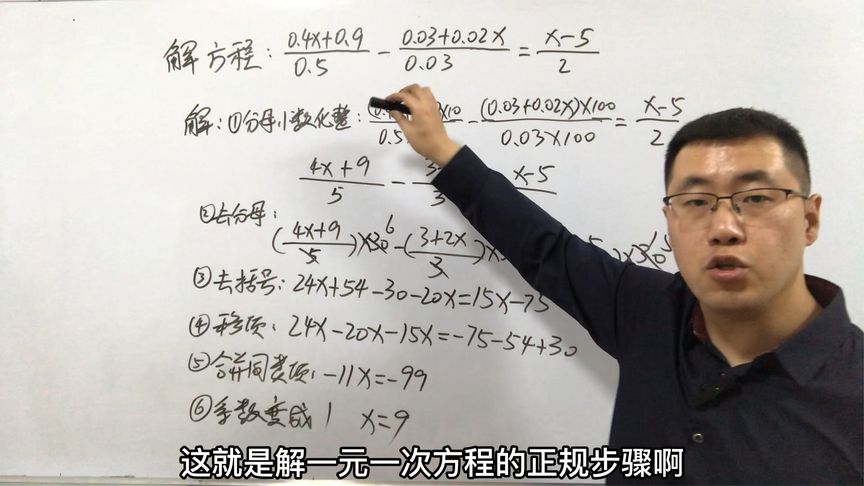 解方程: (0.4x+0.9)/0.5 - (0.03+0.02x)/0.03 = (x-5)/2
解: ①分母小数化整: ×10/0.5 - (0.03+0.02x)×100/(0.03×100) = (x-5)/2
(4x+9)/5 - 3 x-5
②去分母:
((4x+9)/5)×30 6 - ((3+2x)/3)× ×30 15
③去括号: 24x+54-30-20x=15x-75
④移项: 24x-20x-15x=-75-54+30
⑤合并同类项: -11x=-99
⑥系数变成1 x=9
这就是解一元一次方程的正规步骤啊